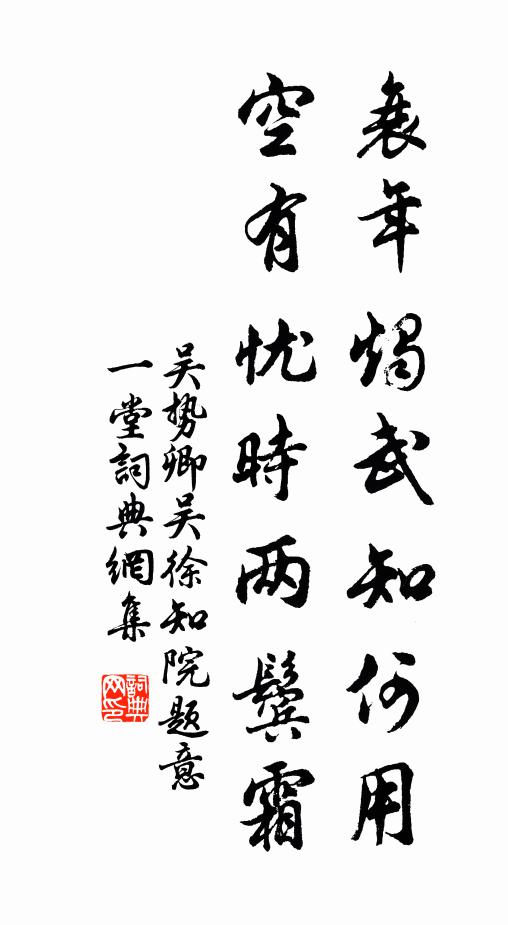 衰年燭武知何用
空有忧時两鬓霜
吴势卿吴徐知院题意
一堂詞典網集
詞典
网印